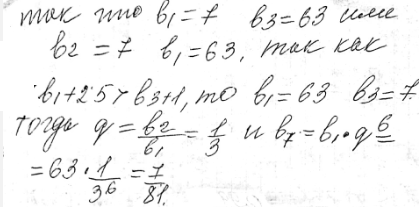 так что b₁=7 b₃=63 или
b₂=7 b₁=63, так как
b₁+25>b₃+1, то b₁=63 b₃=7
тогда q=b₂/b₁=1/3 и b₇=b₁·q⁶=
=63·1/3⁶=7/81.